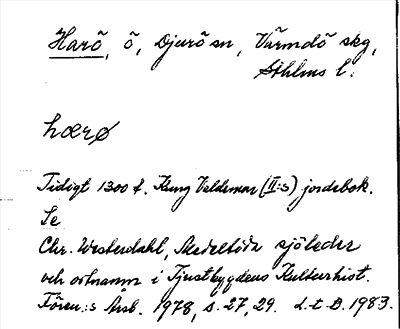 Harö, ö, Djurö sn, Värmdö skg,
Sthlms l.
hærø
Tidigt 1300 t. Kung Valdemar (II:s) jordebok.
Se
Chr. Westerdahl, Medeltida sjöleder
och ortnamn i Tjustbygdens Kulturhist.
Fören:s Årsb. 1978, s. 27, 29. L.t.B. 1983.